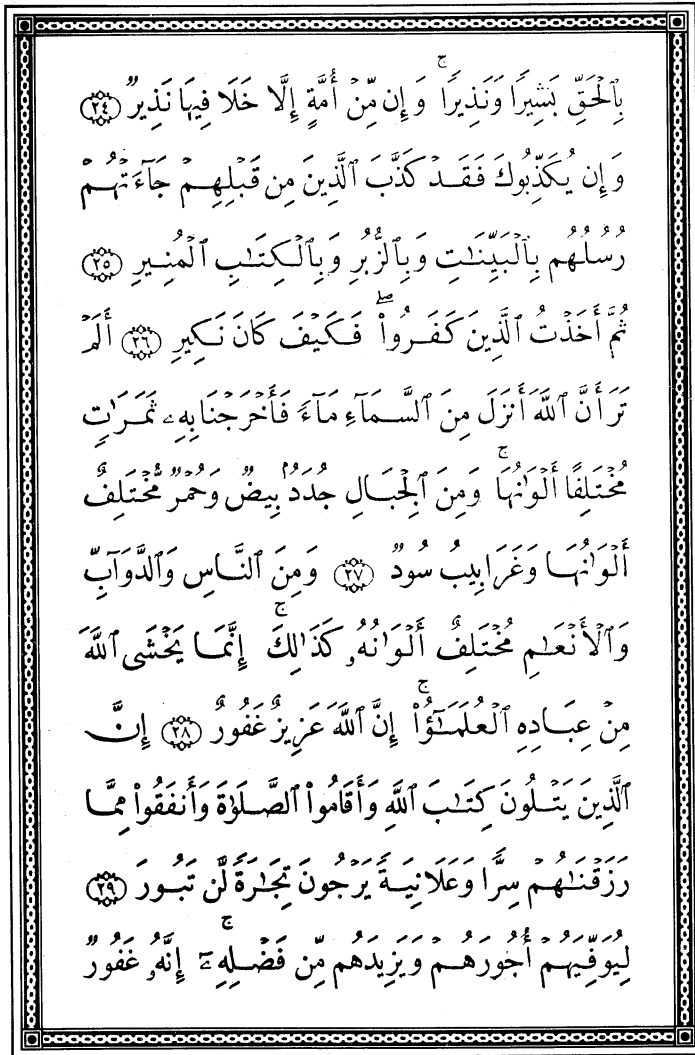 بِٱلْحَقِّ بَشِيرًا وَنَذِيرًا ۚ وَإِن مِّنْ أُمَّةٍ إِلَّا خَلَا فِيهَا نَذِيرٌ ۝٢٤
وَإِن يُكَذِّبُوكَ فَقَدْ كَذَّبَ ٱلَّذِينَ مِن قَبْلِهِمْ جَآءَتْهُمْ
رُسُلُهُم بِٱلْبَيِّنَٰتِ وَبِٱلزُّبُرِ وَبِٱلْكِتَٰبِ ٱلْمُنِيرِ ۝٢٥
ثُمَّ أَخَذْتُ ٱلَّذِينَ كَفَرُوا۟ ۖ فَكَيْفَ كَانَ نَكِيرِ ۝٢٦ أَلَمْ
تَرَ أَنَّ ٱللَّهَ أَنزَلَ مِنَ ٱلسَّمَآءِ مَآءً فَأَخْرَجْنَا بِهِۦ ثَمَرَٰتٍ
مُّخْتَلِفًا أَلْوَٰنُهَا ۚ وَمِنَ ٱلْجِبَالِ جُدَدٌۢ بِيضٌ وَحُمْرٌ مُّخْتَلِفٌ
أَلْوَٰنُهَا وَغَرَابِيبُ سُودٌ ۝٢٧ وَمِنَ ٱلنَّاسِ وَٱلدَّوَآبِّ
وَٱلْأَنْعَٰمِ مُخْتَلِفٌ أَلْوَٰنُهُۥ كَذَٰلِكَ ۗ إِنَّمَا يَخْشَى ٱللَّهَ
مِنْ عِبَادِهِ ٱلْعُلَمَٰٓؤُا۟ ۗ إِنَّ ٱللَّهَ عَزِيزٌ غَفُورٌ ۝٢٨ إِنَّ
ٱلَّذِينَ يَتْلُونَ كِتَٰبَ ٱللَّهِ وَأَقَامُوا۟ ٱلصَّلَوٰةَ وَأَنفَقُوا۟ مِمَّا
رَزَقْنَٰهُمْ سِرًّا وَعَلَانِيَةً يَرْجُونَ تِجَٰرَةً لَّن تَبُورَ ۝٢٩
لِيُوَفِّيَهُمْ أُجُورَهُمْ وَيَزِيدَهُم مِّن فَضْلِهِۦٓ ۚ إِنَّهُۥ غَفُورٌ